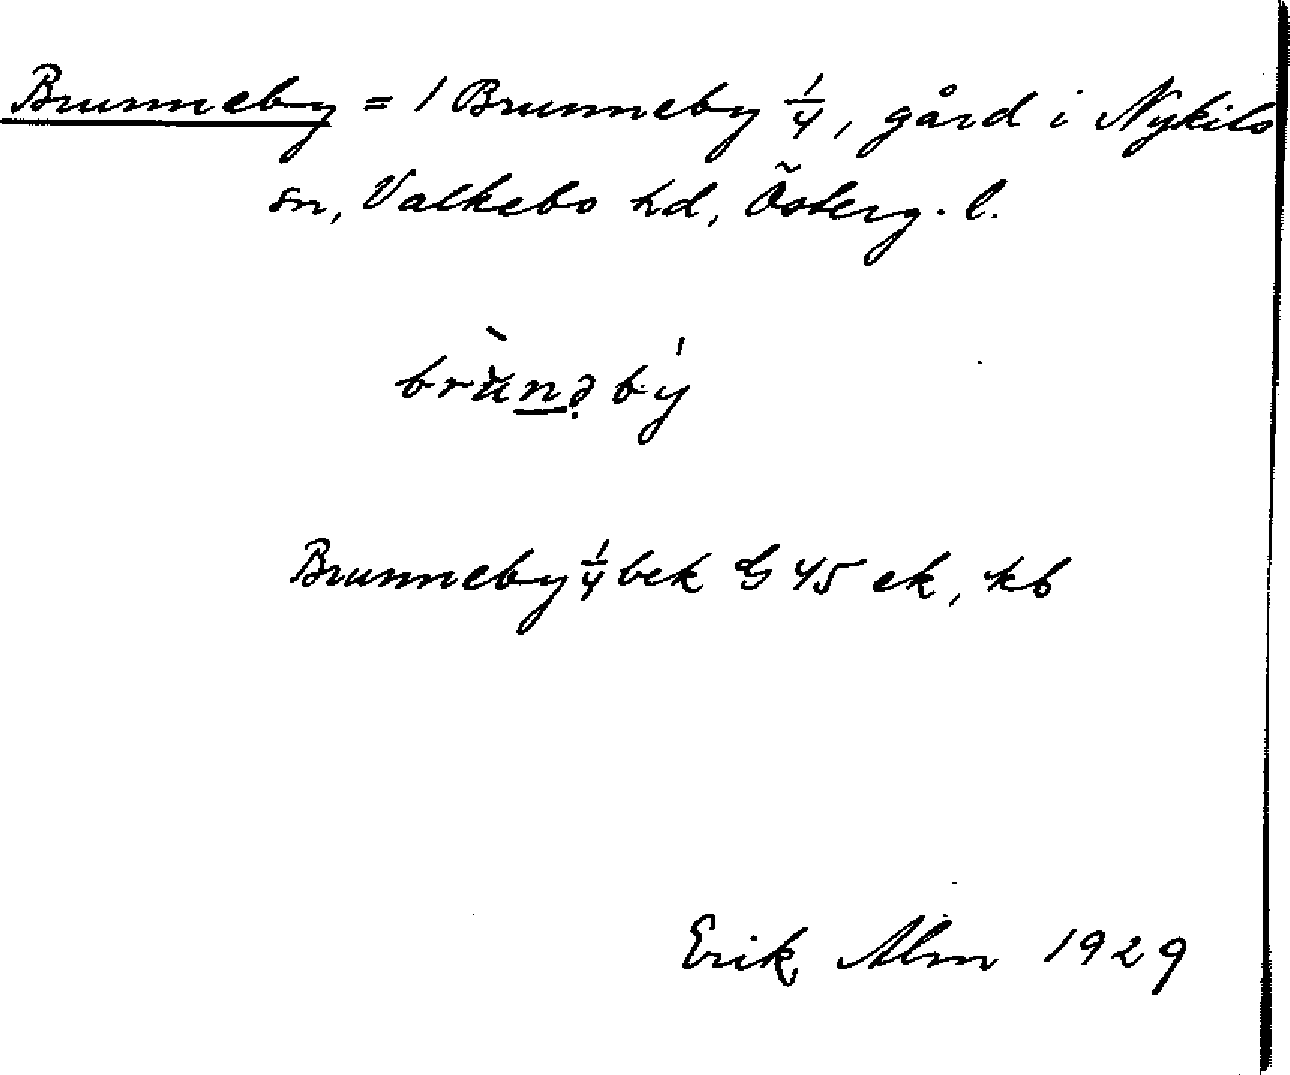 Brunneby = 1 Brunneby 1/4, gård i Nykils
sn, Valkebo hd, Österg. l.
brùnəbý
Brunneby 1/4 bek G 45 ek, kb
Erik Alm 1929